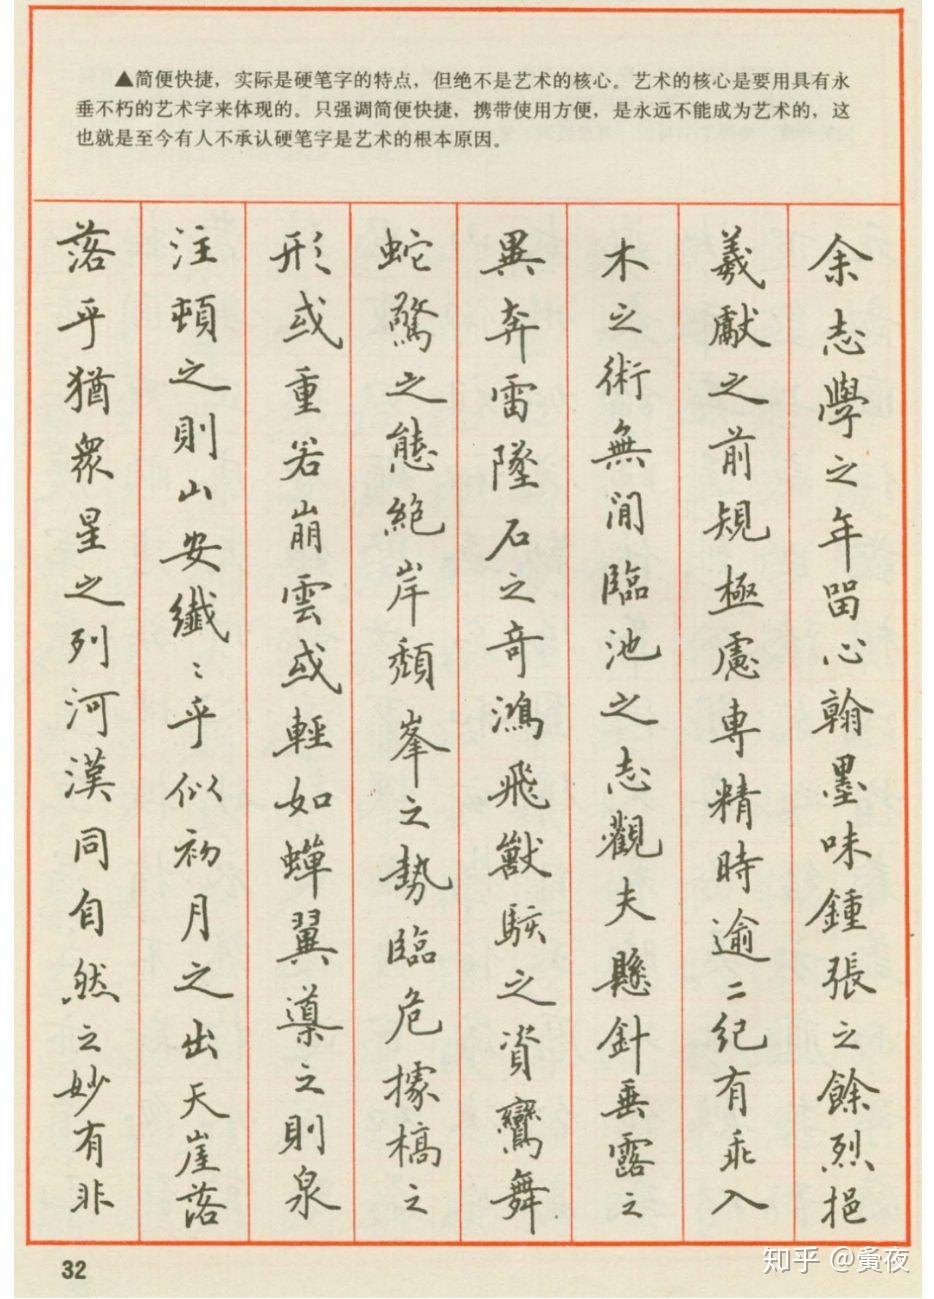 ▲简便快捷，实际是硬笔字的特点，但绝不是艺术的核心。艺术的核心是要用具有永
垂不朽的艺术字来体现的。只强调简便快捷，携带使用方便，是永远不能成为艺术的，这
也就是至今有人不承认硬笔字是艺术的根本原因。
余志學之年留心翰墨味鍾張之餘烈挹
羲獻之前規極慮專精時逾二紀有乖入
木之術無間臨池之志觀夫懸針垂露之
異奔雷墜石之奇鴻飛獸駭之資鸞舞
蛇驚之態絕岸頹峯之勢臨危據槁之
形或重若崩雲或輕如蟬翼導之則泉
注頓之則山安纖〻乎似初月之出天崖落
落乎猶眾星之列河漢同自然之妙有非
32
知乎 @夤夜